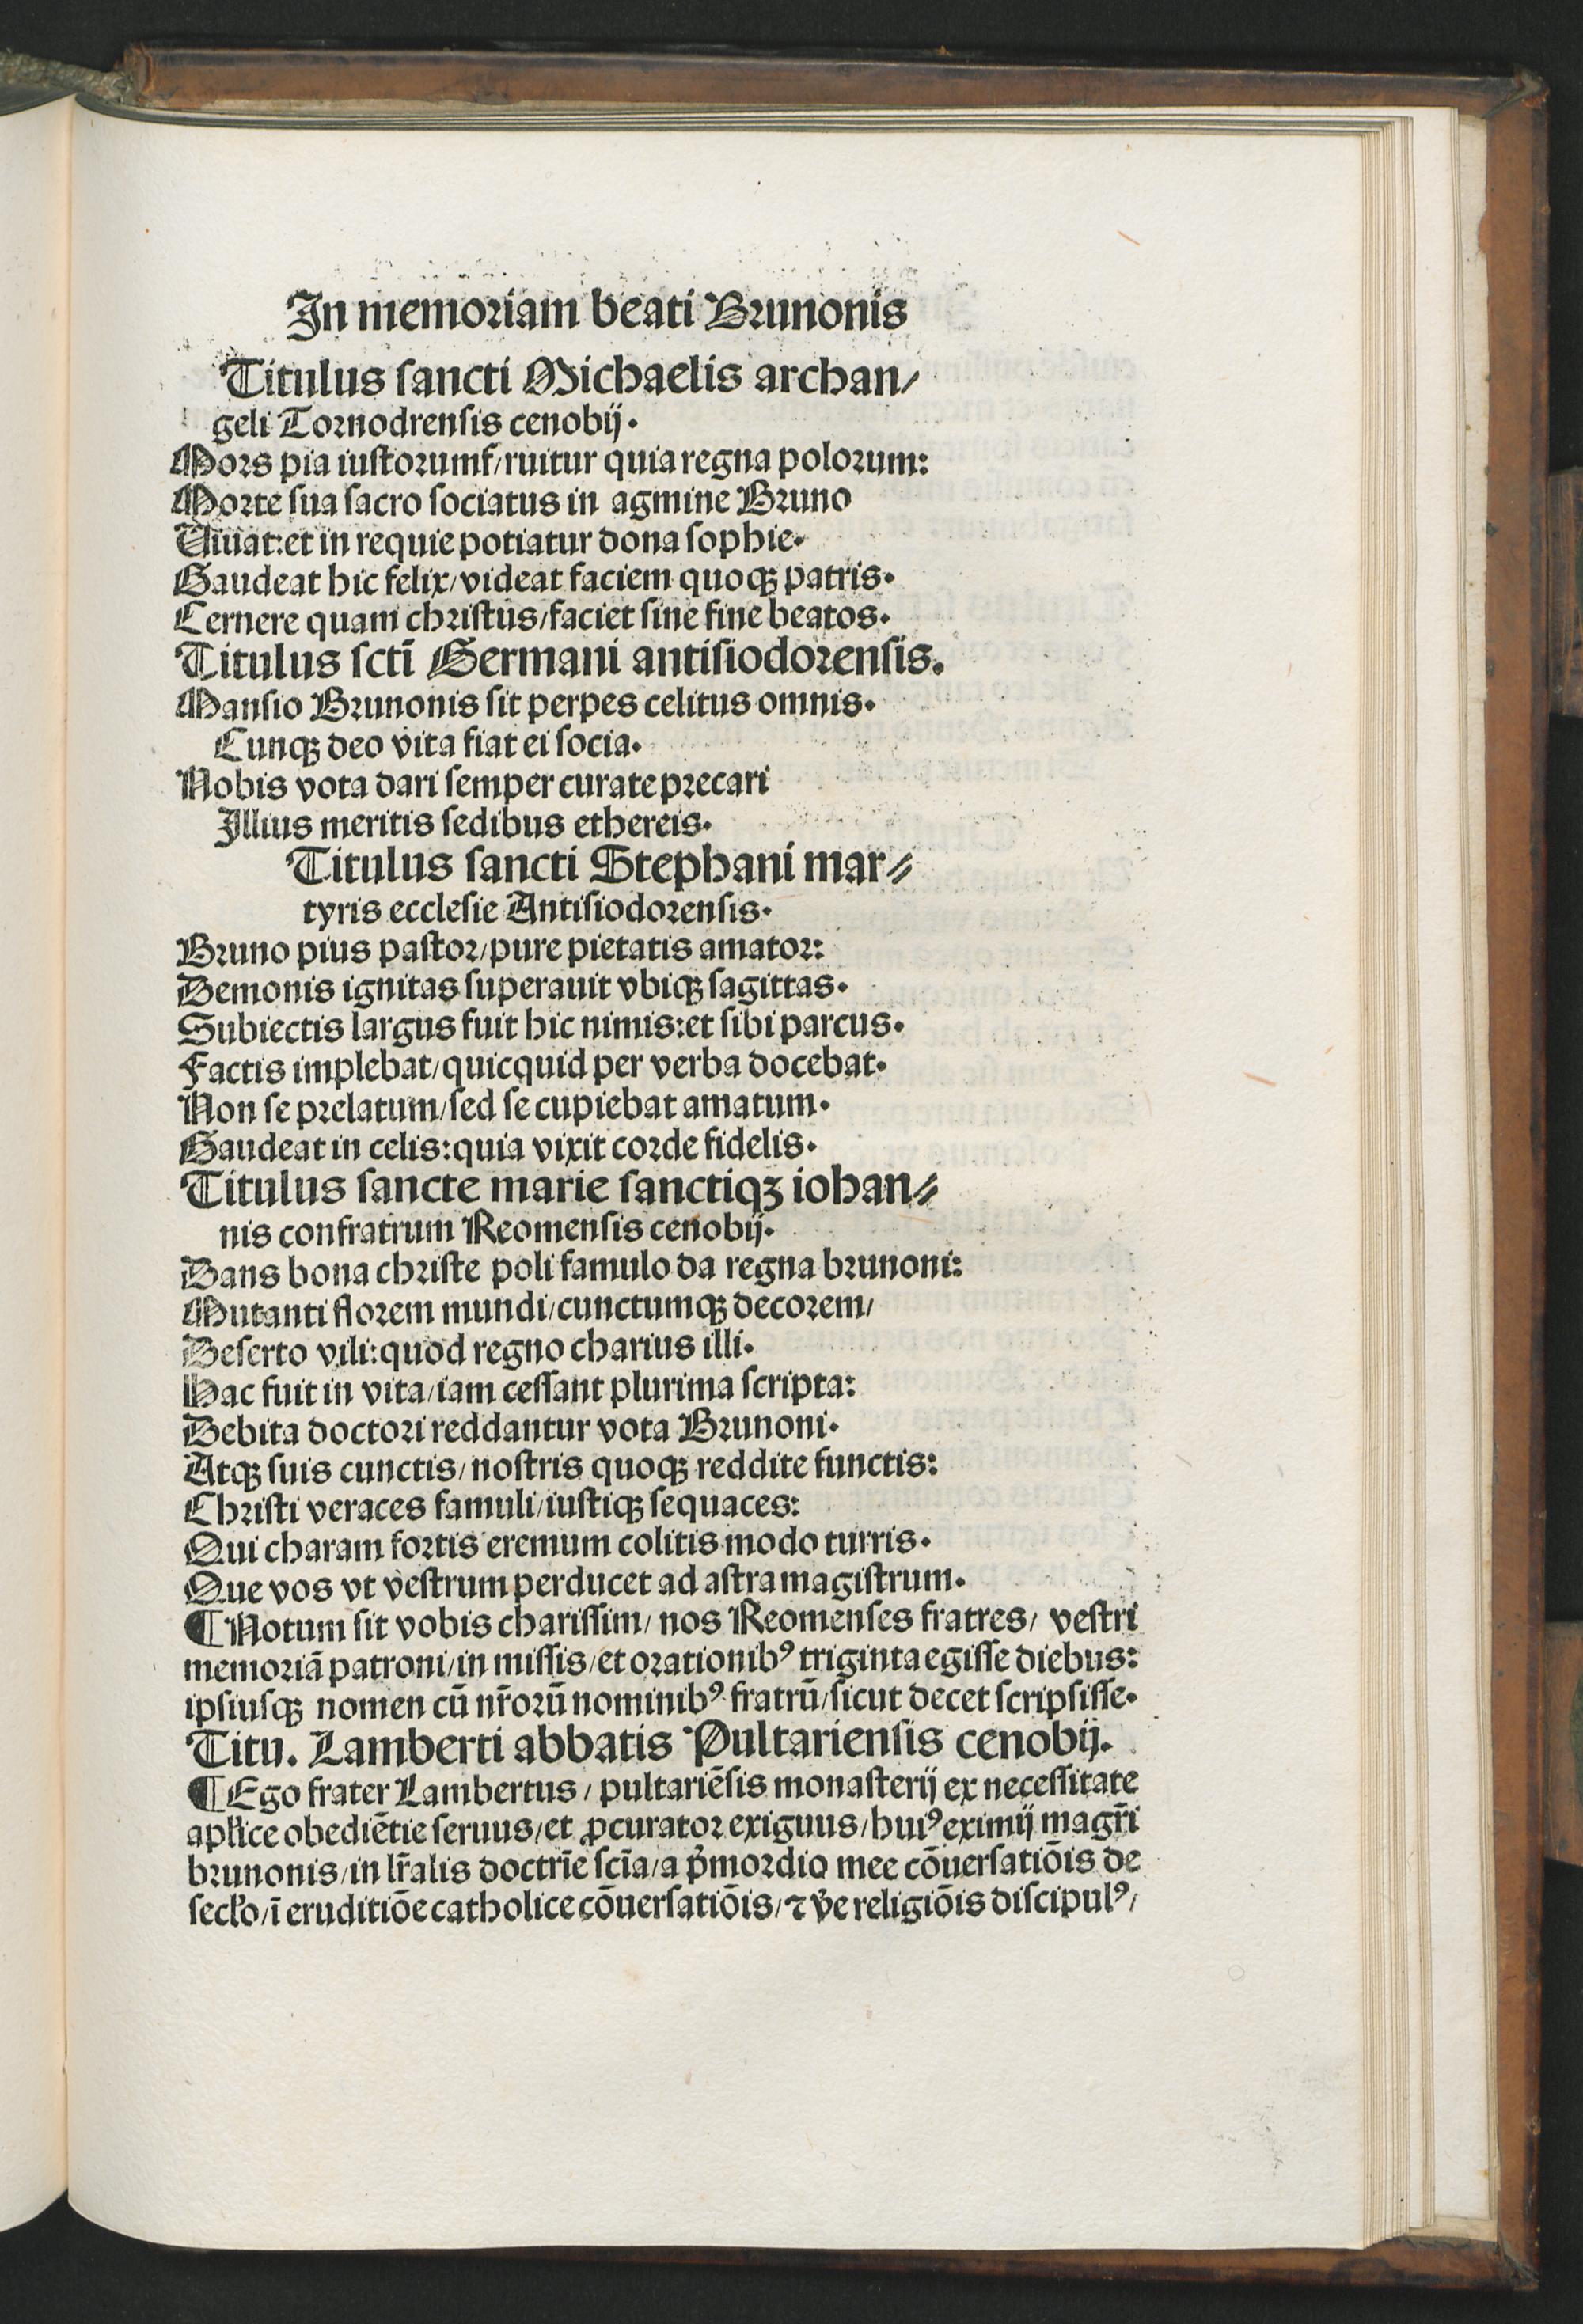 In memoriam beati Brunonis
Titulus sancti Michaelis archan/
geli Tornodrensis cenobij.
Mors pia iustorumf/ruitur quia regna polorum:
Morte sua sacro sociatus in agmine Bruno
Viuat:et in requie potiatur dona sophie.
Gaudeat hic felix/videat faciem quoqꝫ patris.
Cernere quam christus/faciet sine fine beatos.
Titulus sctī Germani antisiodorensis.
Mansio Brunonis sit perpes celitus omnis.
Cunqꝫ deo vita fiat ei socia.
Nobis vota dari semper curate precari
Illius meritis sedibus ethereis.
Titulus sancti Stephani mar⸗
tyris ecclesie Antisiodorensis.
Bruno pius pastor/pure pietatis amator:
Demonis ignitas superauit vbiqꝫ sagittas.
Subiectis largus fuit hic nimis:et sibi parcus.
Factis implebat/quicquid per verba docebat.
Non se prelatum/sed se cupiebat amatum.
Gaudeat in celis:quia vixit corde fidelis.
Titulus sancte marie sanctiqꝫ iohan⸗
nis confratrum Reomensis cenobij.
Dans bona christe poli famulo da regna brunoni:
Mutanti florem mundi/cunctumqꝫ decorem/
Deserto vili:quod regno charius illi.
Hac fuit in vita/iam cessant plurima scripta:
Debita doctori reddantur vota Brunoni.
Atqꝫ suis cunctis/nostris quoqꝫ reddite functis:
Christi veraces famuli/iustiqꝫ sequaces:
Qui charam fortis eremum colitis modo turris.
Que vos vt vestrum perducet ad astra magistrum.
¶ Notum sit vobis charissim/ nos Reomenses fratres/ vestri
memoriā patroni/in missis/et orationibꝰ triginta egisse diebus:
ipsiusqꝫ nomen cū nr̄orū nominibꝰ fratrū/sicut decet scripsisse.
Titu. Lamberti abbatis Pultariensis cenobij.
¶ Ego frater Lambertus/ pultariēsis monasterij ex necessitate
apl̓ice obediētie seruus/et ꝓcurator exiguus/huiꝰ eximij magr̄i
brunonis/in lr̄alis doctrīe scīa/a p̓mordio mee cōuersatiōis de
secl̓o/ī eruditiōe catholice cōuersatiōis/⁊ v̓e religiōis discipulꝰ/